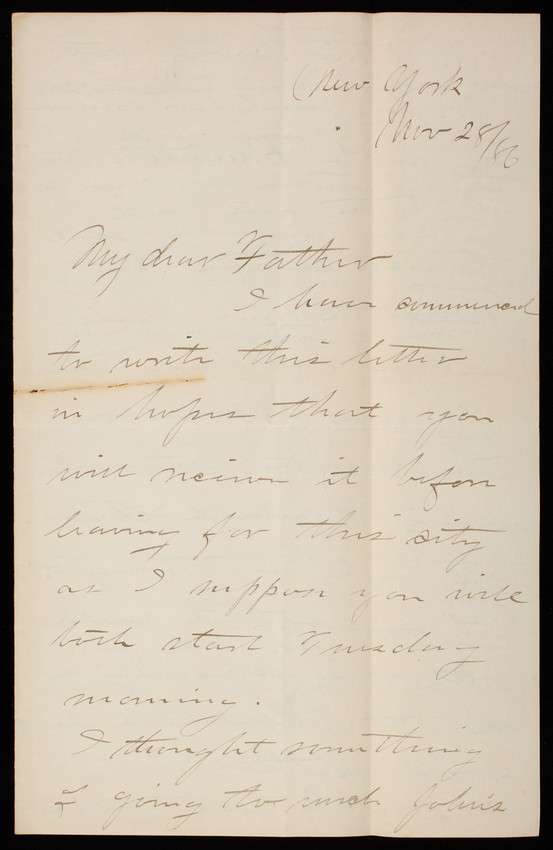 New York
Nov 28/86
My dear Father
I have commenced
to write this letter
in hopes that you
will receive it before
leaving for this city
as I suppose you will
both start Tuesday
morning.
I thought something
of going to John's